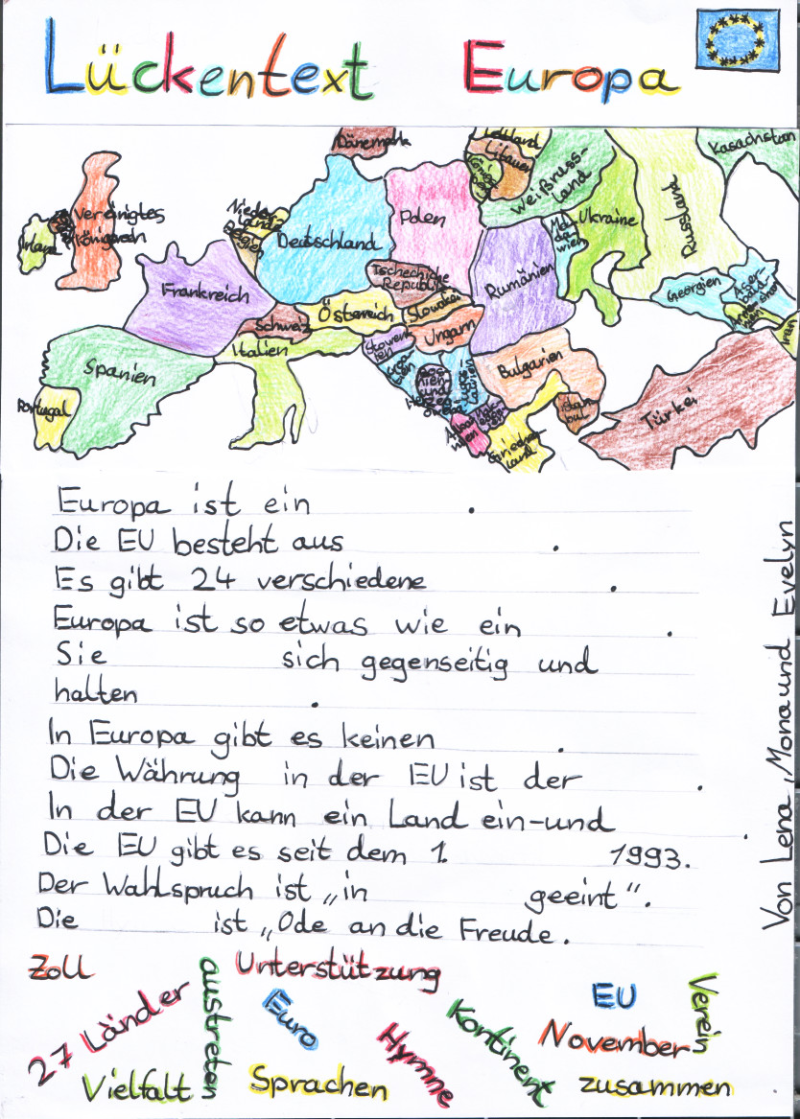 Lückentext Europa
Dänemark
Lettland
Litauen
Weißruss-
land
Kasachstan
Irland
Vereinigtes
Königreich
Nieder-
lande
Deutschland
Polen
Mol
da
wien
Ukraine
Russland
Frankreich
Tschechische
Republik
Rumänien
Georgien
Schweiz
Österreich
Slowakei
Iran
Spanien
Italien
Slowen
ien
Ungarn
Bulgarien
Portugal
Istan
bul
Türkei
Europa ist ein .
Die EU besteht aus .
Es gibt 24 verschiedene .
Europa ist so etwas wie ein .
Sie sich gegenseitig und
halten .
In Europa gibt es keinen .
Die Währung in der EU ist der .
In der EU kann ein Land ein-und .
Die EU gibt es seit dem 1. 1993.
Der Wahlspruch ist „in geeint“.
Die ist „Ode an die Freude.
Von Lena, Mona und Evelyn
Zoll
27 Länder
austreten
Unterstützung
Euro
Hymne
Kontinent
EU
November
Verein
Vielfalt
Sprachen
zusammen